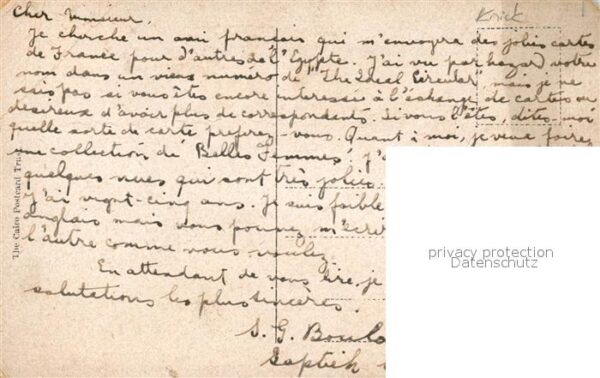 Cher Monsieur,
Je cherche un ami français qui m'envoyera des jolies cartes
de France pour d'autres de l'Egypte. J'ai vu par hazard votre
nom dans un vieux numero de "The Ideal Circular" mais je ne
sais pas si vous êtes encore interessé à l'échange de cartes ou
desireux d'avoir plus de correspondents. Si vous l'êtes, dites-moi
quelle sorte de carte preferez-vous. Quant à moi, je veux faire
une collection de Belles Femmes. J'
quelques unes qui sont très jolies
J'ai vignt-cinq ans. Je suis faible
anglais mais vous pouvez m'écri
l'autre comme vous voulez.
En attendant de vous lire, je
salutations les plus sincères.
S. G.
The Cairo Postcard Tru
privacy protection
Datenschutz